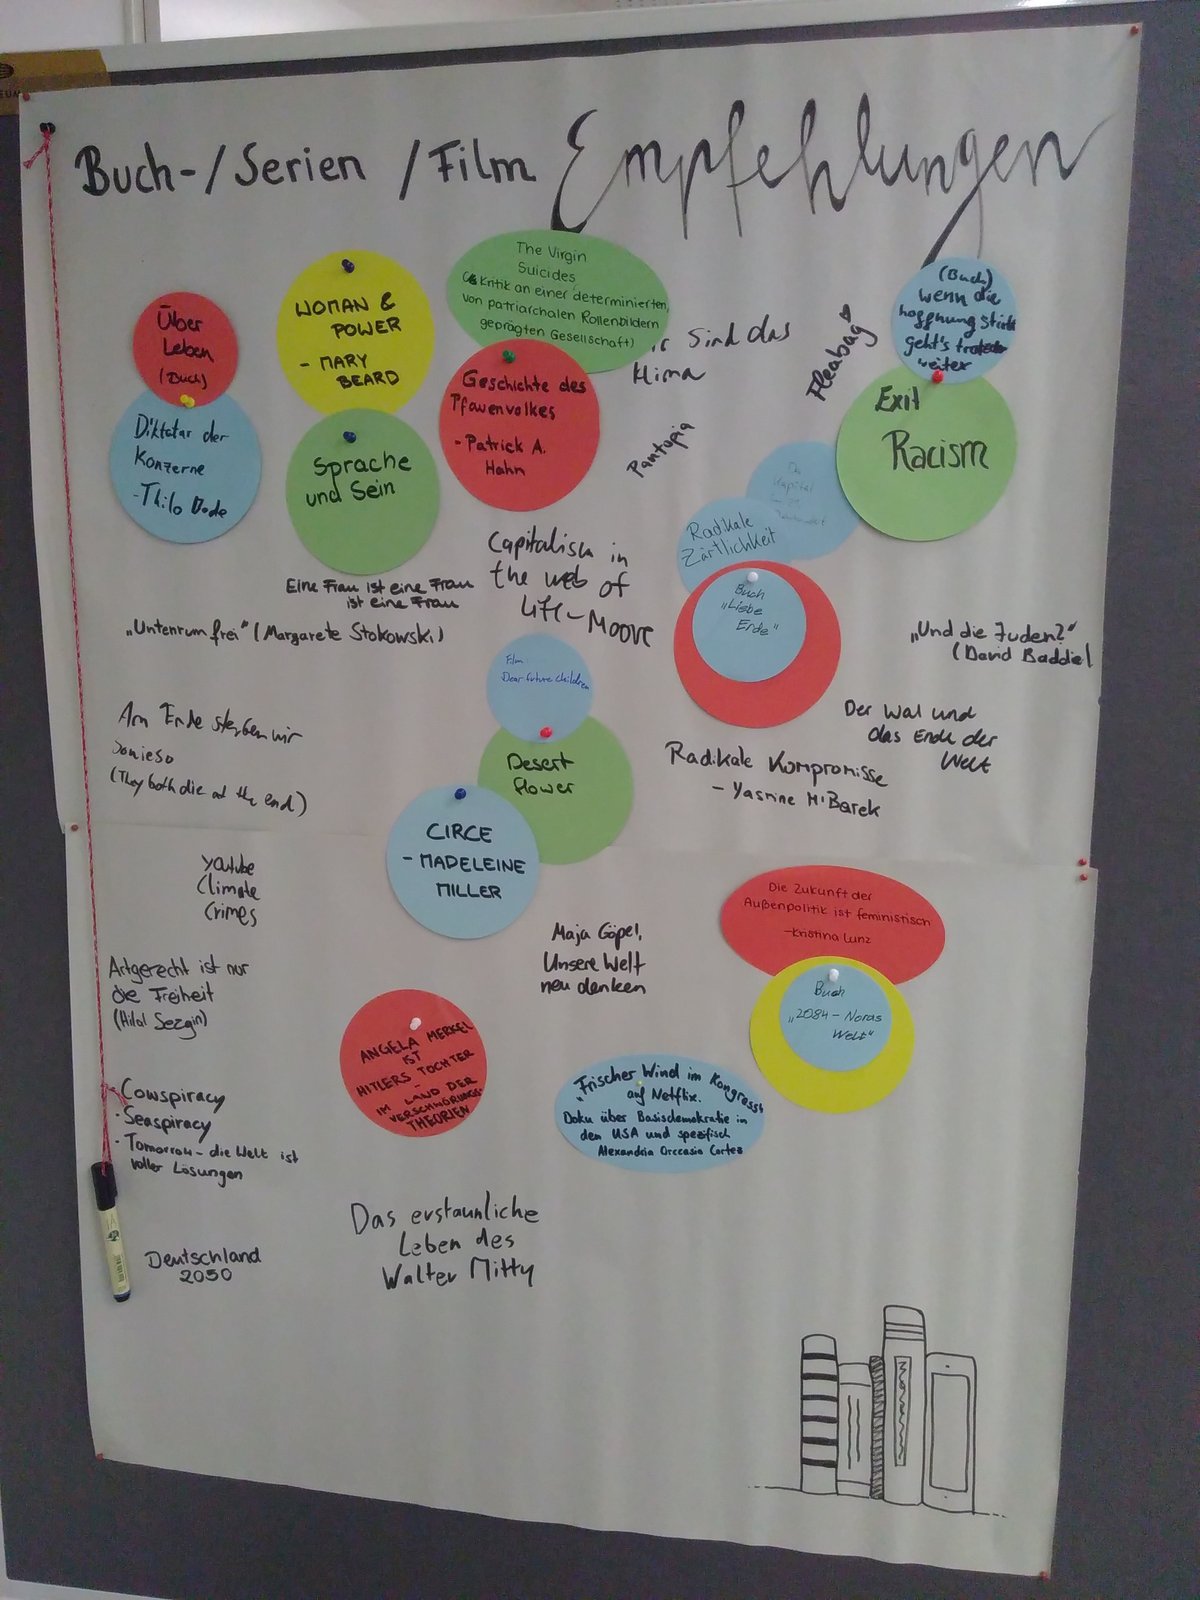 Buch-/Serien /Film Empfehlungen
Über
Leben
(Buch)
Diktatur der
Konzerne
-Thilo Bode
WOMAN &
POWER
- MARY
BEARD
Sprache
und Sein
The Virgin
Suicides
Kritik an einer determinierten,
von patriarchalen Rollenbildern
geprägten Gesellschaft)
Geschichte des
Pfauenvolkes
- Patrick A.
Hahn
sind das
Klima
Pantopia
Fleabag
(Buch)
wenn die
hoffnung stirbt
geht's trotzdem
weiter
Exit
Racism
Das
Kapital
im 21.
Jahrhundert
Radikale
Zärtlichkeit
Buch
„Liebe
Ende"
Capitalism in
the web of
life - Moore
Eine Frau ist eine Frau
ist eine Frau
„Untenrum frei" (Margarete Stokowski)
„Und die Juden?"
(David Baddiel
Film
Dear future children
Desert
flower
CIRCE
- MADELEINE
MILLER
Am Ende sterben wir
sowieso
(They both die at the end)
Der Wal und
das Ende der
Welt
Radikale Kompromisse
- Yasmine M'Barek
Youtube
Climate
Crimes
Die Zukunft der
Außenpolitik ist feministisch
-Kristina Lunz
Maja Göpel,
Unsere Welt
neu denken
Buch
„2084 - Noras
Welt"
Artgerecht ist nur
die Freiheit
(Hilal Sezgin)
ANGELA MERKEL
IST
HITLERS TOCHTER
-
IM LAND DER
VERSCHWÖRUNGS-
THEORIEN
„Frischer Wind im Kongress"
auf Netflix.
Doku über Basisdemokratie in
den USA und spezifisch
Alexandria Occasio Cortez
- Cowspiracy
- Seaspiracy
- Tomorrow - die Welt ist
voller Lösungen
Das erstaunliche
Leben des
Walter Mitty
Deutschland
2050